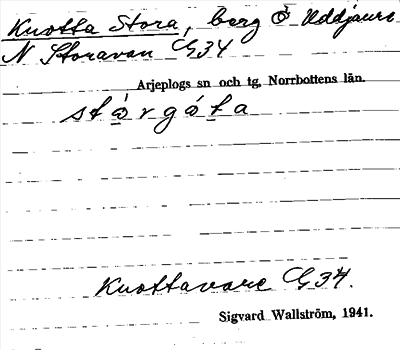 Knotta Stora, berg Ö Uddjaure
N Storavan G34
Arjeplogs sn och tg, Norrbottens län.
stórgóta
Knottavare G 34.
Sigvard Wallström, 1941.